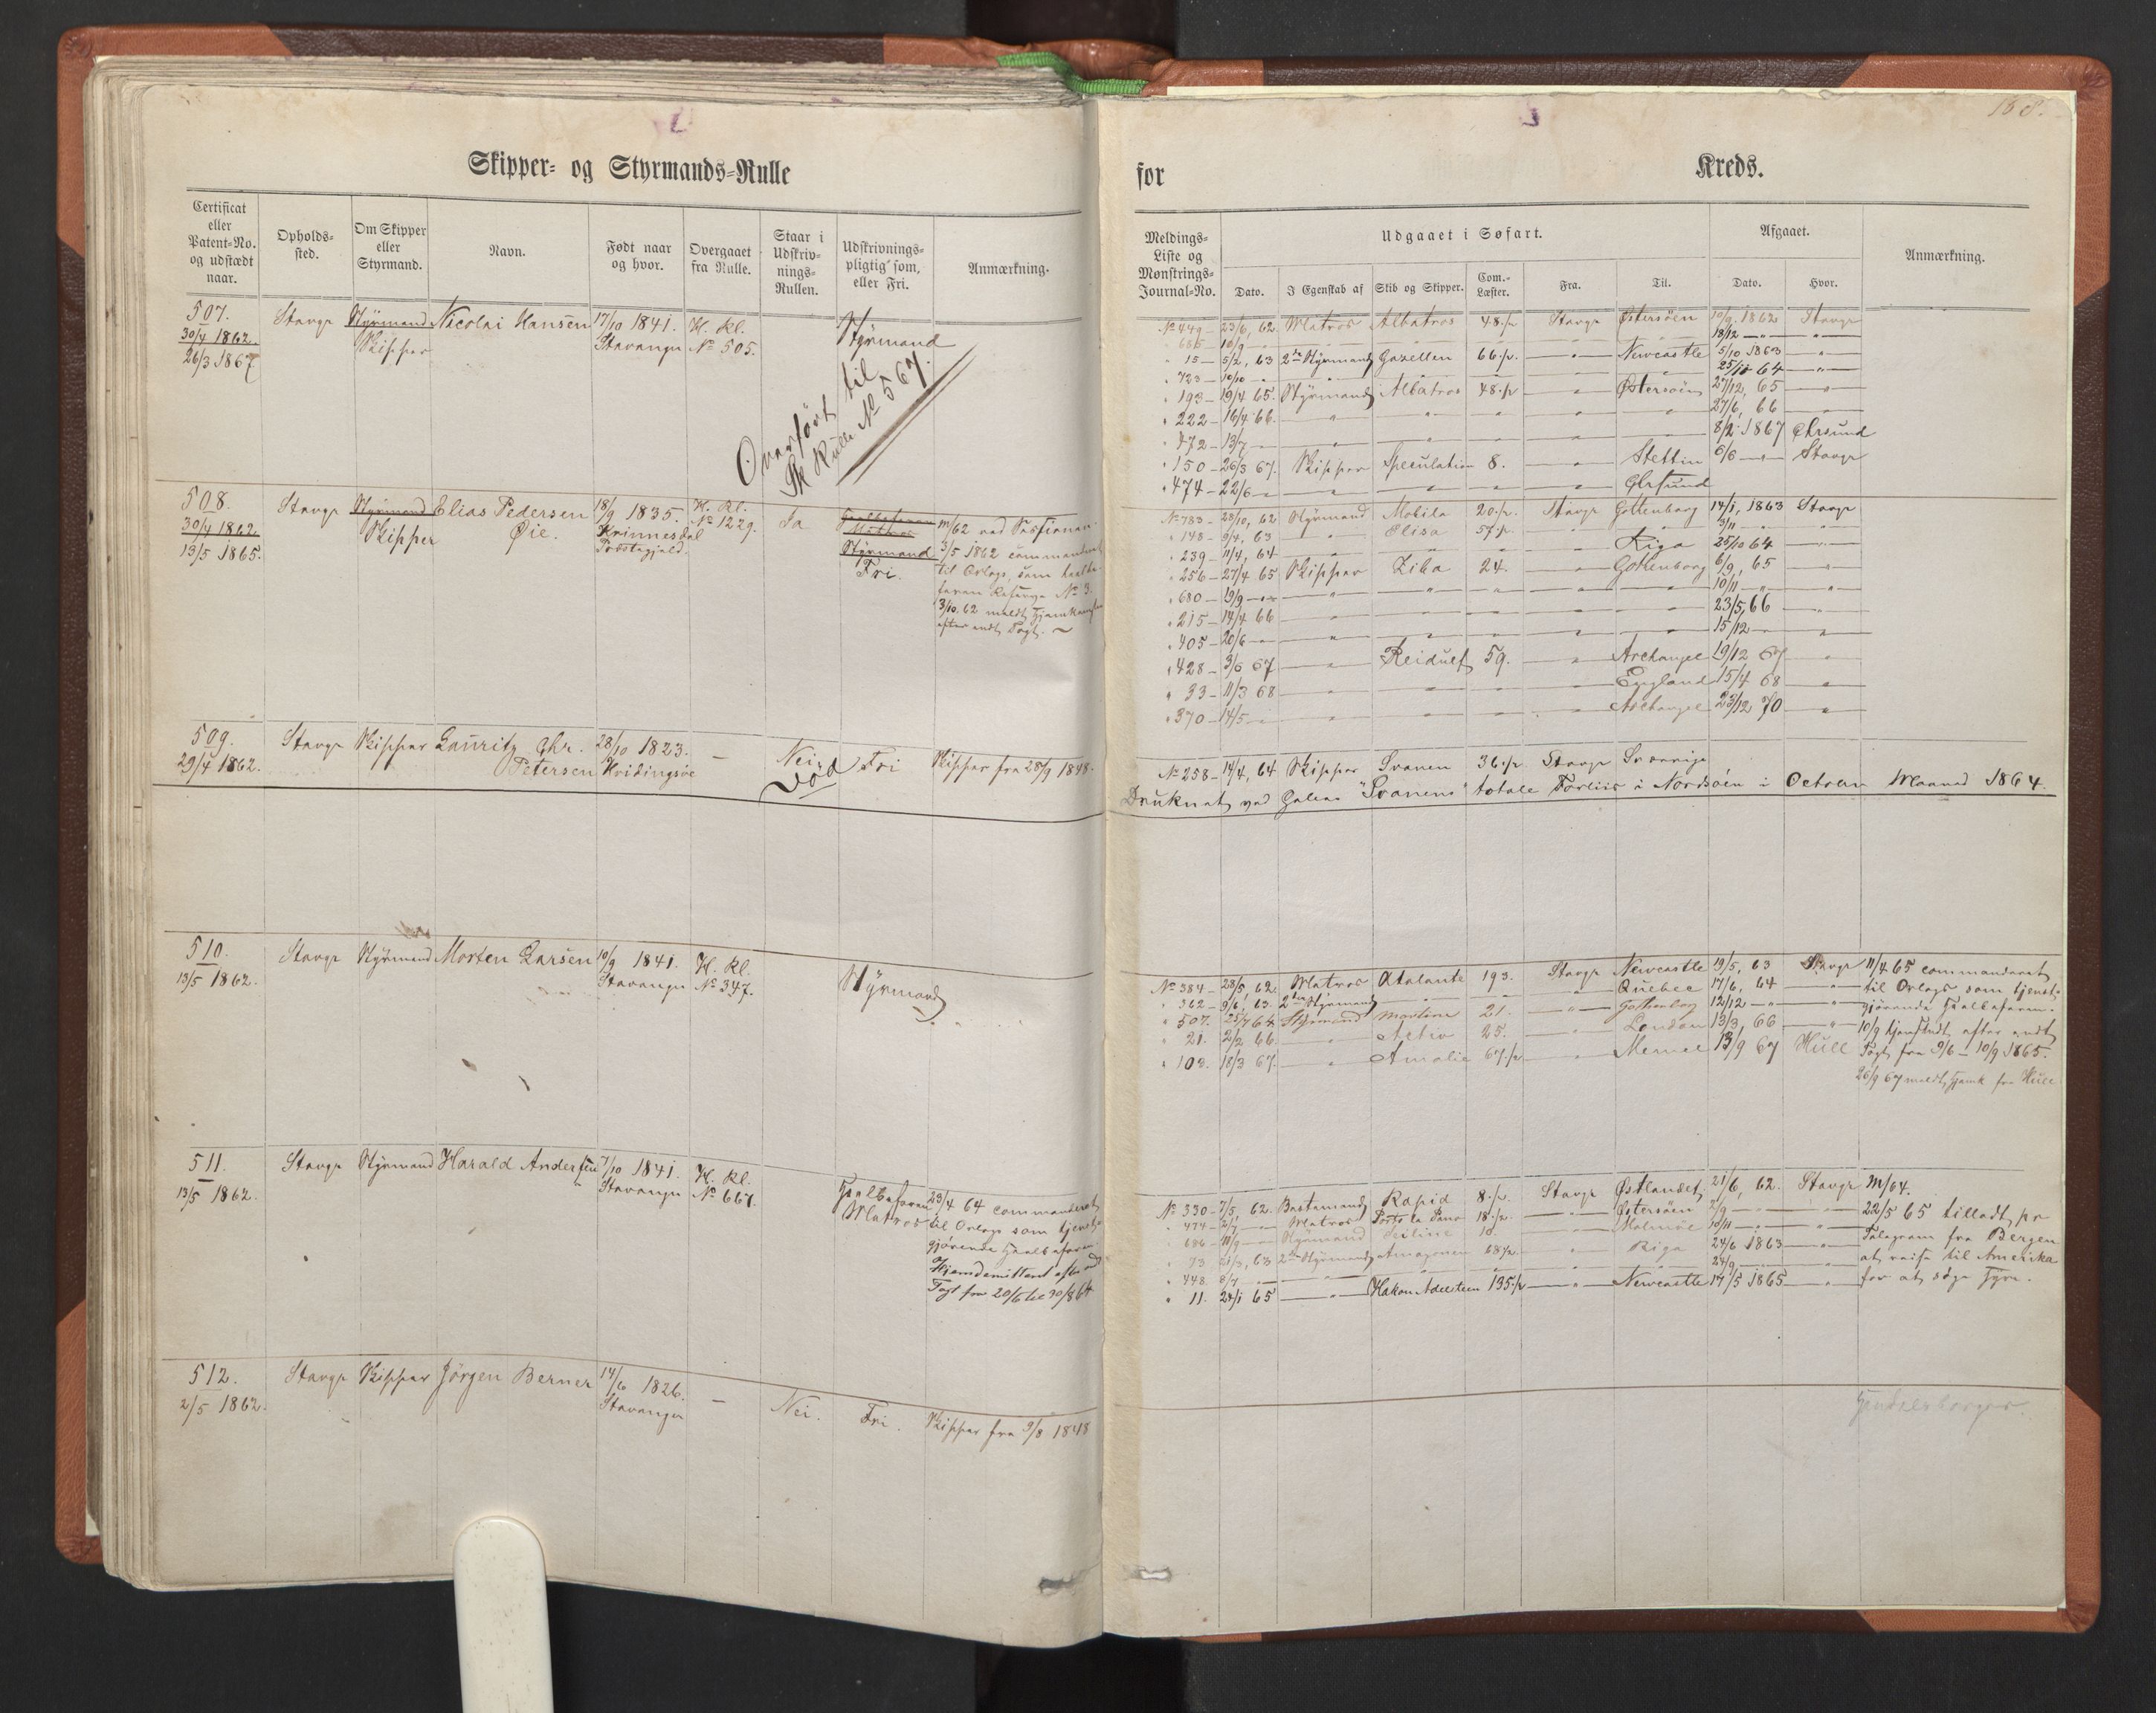 168.
Skipper- og Styrmands-Rulle
for Kreds.
Certificat eller Patent-No. og udstædt naar.
Opholds-sted.
Om Skipper eller Styrmand.
Navn.
Født naar og hvor.
Overgaaet fra Rulle.
Staar i Udskriv-nings-Rullen.
Udskrivnings-pligtig som, eller Fri.
Anmærkning.
Meldings-Liste og Mønstrings-Journal-No.
Udgaaet i Søfart.
Dato.
I Egenskab af
Skib og Skipper.
Com.-Læster.
Fra.
Til.
Afgaaet.
Dato.
Hvor.
Anmærkning.
507.
30/4 1862.
26/3 1867
Stavgr
Styrmand
Skipper
Nicolai Hansen
17/10 1841.
Stavanger
H. Rl.
No 505.
Styrmand
Overført til
Sk Rulle No 567.
No 449 - 23/6, 62. Matros Albatros 48 1/2 Stavgr Østersøen 10/9 1862 Stavgr
" 685 - 10/9 — 18/12 —
" 15 - 5/2, 63 2den Styrmand Gazellen 66 1/2 — Newcastle 5/10 1863 —
" 723 - 10/10 — 64 —
" 193 - 19/4 65. Styrmand Albatros 48 1/2 — Østersøen 27/12, 65 —
" 222 - 16/4 66. — 27/6, 66 —
" 472 - 13/7 — 8/2 1867 Ehrsund
" 150 - 26/3 67. Skipper Speculation 8. — Stettin 6/6 — Stavgr
" 474 - 22/6 —
508.
30/4 1862.
13/5 1865.
Stavgr
Styrmand
Skipper
Elias Pedersen
Øie.
18/9 1835.
Qvinnesdal
Præstegjeld.
H. Rl.
No 1229.
Ja
Styrmand
Fri.
3/5 1862 commanderet
til Orlogs, som halvbe-
faren Reserve No 3.
3/10. 62 meldt Hjemkommen
efter endt Togt. ~
No 783 - 28/10, 62 Styrmand Mobila 20 1/2 Stavgr Gottenborg 14/1, 1863 Stavgr
" 148 - 9/4, 63 — Elisa 57 1/2 — 3/11 —
" 239 - 11/4, 64 — Riga 25/10 64 —
" 256 - 27/4 65 Skipper Ziba 24. — Gothenborg 6/9, 65 —
" 680 - 19/9 — 10/11 —
" 215 - 14/4 66 — 23/5, 66 —
" 405 - 20/6 — 15/12 —
" 428 - 3/6 67 — Reidulf 59. — Archangel 19/12 67 —
" 33 - 11/3 68 — England 15/4 68 —
" 370 - 14/5 — Archangel 23/12 70 —
509.
29/4 1862.
Stavgr
Skipper
Lauritz Chr.
Petersen
28/10 1823.
Hvidingsøe
—
Nei
Død
Fri
Skipper fra 28/9 1848.
No 258 - 14/4, 64 Skipper Svanen 36 1/2 Stavgr Sverrige
Druknet ved Galeas "Svanens" totale Forliis i Nordsøen i October Maaned 1864.
510.
13/5 1862.
Stavgr
Styrmand
Morten Larsen
10/9 1841.
Stavanger
H. Rl.
No 347.
Styrmand
No 384 - 28/5, 62. Matros Atalante 193. Stavgr Newcastle 19/5, 63 Stavgr
" 362 - 9/6, 63. 2den Styrmand — Quebec 17/6, 64 —
" 507. 25/7 64 Styrmand Martina 21. — Gothenborg 12/12 —
" 21. 2/2 66. — Activ 25. — London 13/3, 66 —
" 103. 18/3 67. — Amalie 67 1/2 — Memel 13/9 67 Hull
11/4 65 commanderet
til Orlogs som tjenst-
gjørende Halvbefaren.
10/9 hjemsendt efter endt
Togt fra 9/6 - 10/9 1865.
26/9 67 meldt Hjemk fra Hull
511.
13/5 1862.
Stavgr
Styrmand
Harald Andersen
7/10 1841.
Stavanger
H. Rl.
No 667.
Halvbefaren
Matros
23/4 64 commanderet
til Orlogs som tjenst-
gjørende Halvbefaren.
Hjemdemitteret efter endt
Togt fra 20/6 til 30/8 64
No 330 - 7/5, 62. Bestemand Rapid 8 1/2 Stavgr Østlandet 21/6, 62. Stavgr
" 474 - 2/7 — Matros 18 1/2 — Østersøen 2/9 —
" 686 - 11/9 — Styrmand 10. — Malmöe 10/11 —
" 73 - 21/3, 63 2den Styrmand Amazonen 68 1/2 — Riga 24/6 1863 —
" 448. 8/7 — 24/9 —
" 11. 24/1 65 — Hakon Adelsteen 135 1/2 — Newcastle 17/5 1865 —
22/5 65 tilladt pr
Telegram fra Bergen
at reise til Amerika
for at søge Hyre.
512.
2/5 1862.
Stavgr
Skipper
Jörgen Berner
14/6 1826.
Stavanger
—
Nei.
Fri.
Skipper fra 9/8 1848
Handelsborger.